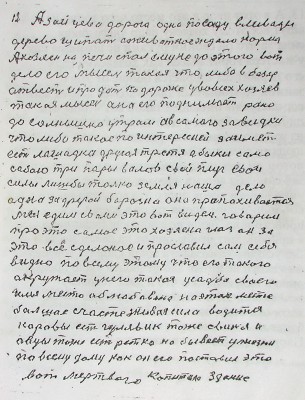 12 А за й цево дорога одно посаду в леваду
дерево щипат а животное надело корма
А хозяен на ноги стал еще до этого вот
дело его мысел такая что либо в боле
отвести и продат на дороже удових хозяев
такая мысел она его поднимает рано
до солнышко утром а в самого заведки
что либо такое по интересней займет
ест лошадка другая третя а быки само
собою три пары валов свой плуг своя
силы лишбы толко земля наша дело
одна за другой борозна она пропахивается
Мы едим своми это вот виден говорим
про это самое это хозяена глаз он за
это всё сделоное и прославил сам себя
видно по всему этому что его такого
окружает у него такая усадба своего
има место облюбавано на этом месте
болшое счасте живая сила водится
каровы ест гулливик тоже свиня и
авцы тоже ест редко но бывает у жизни
по всему дому как он его поставил это
вот мертвого Капитала здание